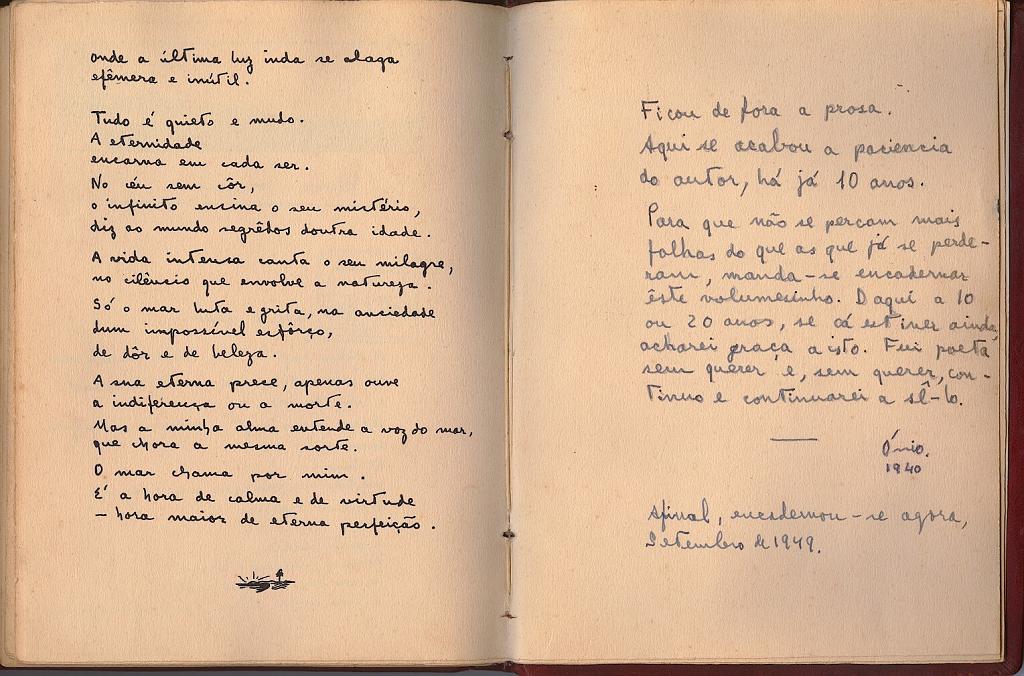 onde a última luz inda se alaga
efêmera e inútil.
Tudo é quieto e mudo.
A eternidade
encarna em cada ser.
No céu sem côr,
o infinito ensina o seu mistério,
diz ao mundo segrêdos doutra idade.
A vida intensa canta o seu milagre,
no cilêncio que envolve a natureza.
Só o mar luta e grita, na anciedade
dum impossível esfôrço,
de dôr e de beleza.
A sua eterna prece, apenas ouve
a indiferença ou a morte.
Mas a minha alma entende a voz do mar,
que chora a mesma sorte.
O mar chama por mim.
E' a hora de calma e de virtude
– hora maior de eterna perfeição.
Ficou de fora a prosa.
Aqui se acabou a paciencia
do autor, há já 10 anos.
Para que não se percam mais
folhas do que as que já se perde-
ram, manda-se encadernar
êste volumesinho. Daqui a 10
ou 20 anos, se cá estiver ainda,
acharei graça a isto. Fui poeta
sem querer e, sem querer, con-
tinuo e continuarei a sê-lo.
1940
Afinal, encadernou-se agora,
Setembro de 1949.